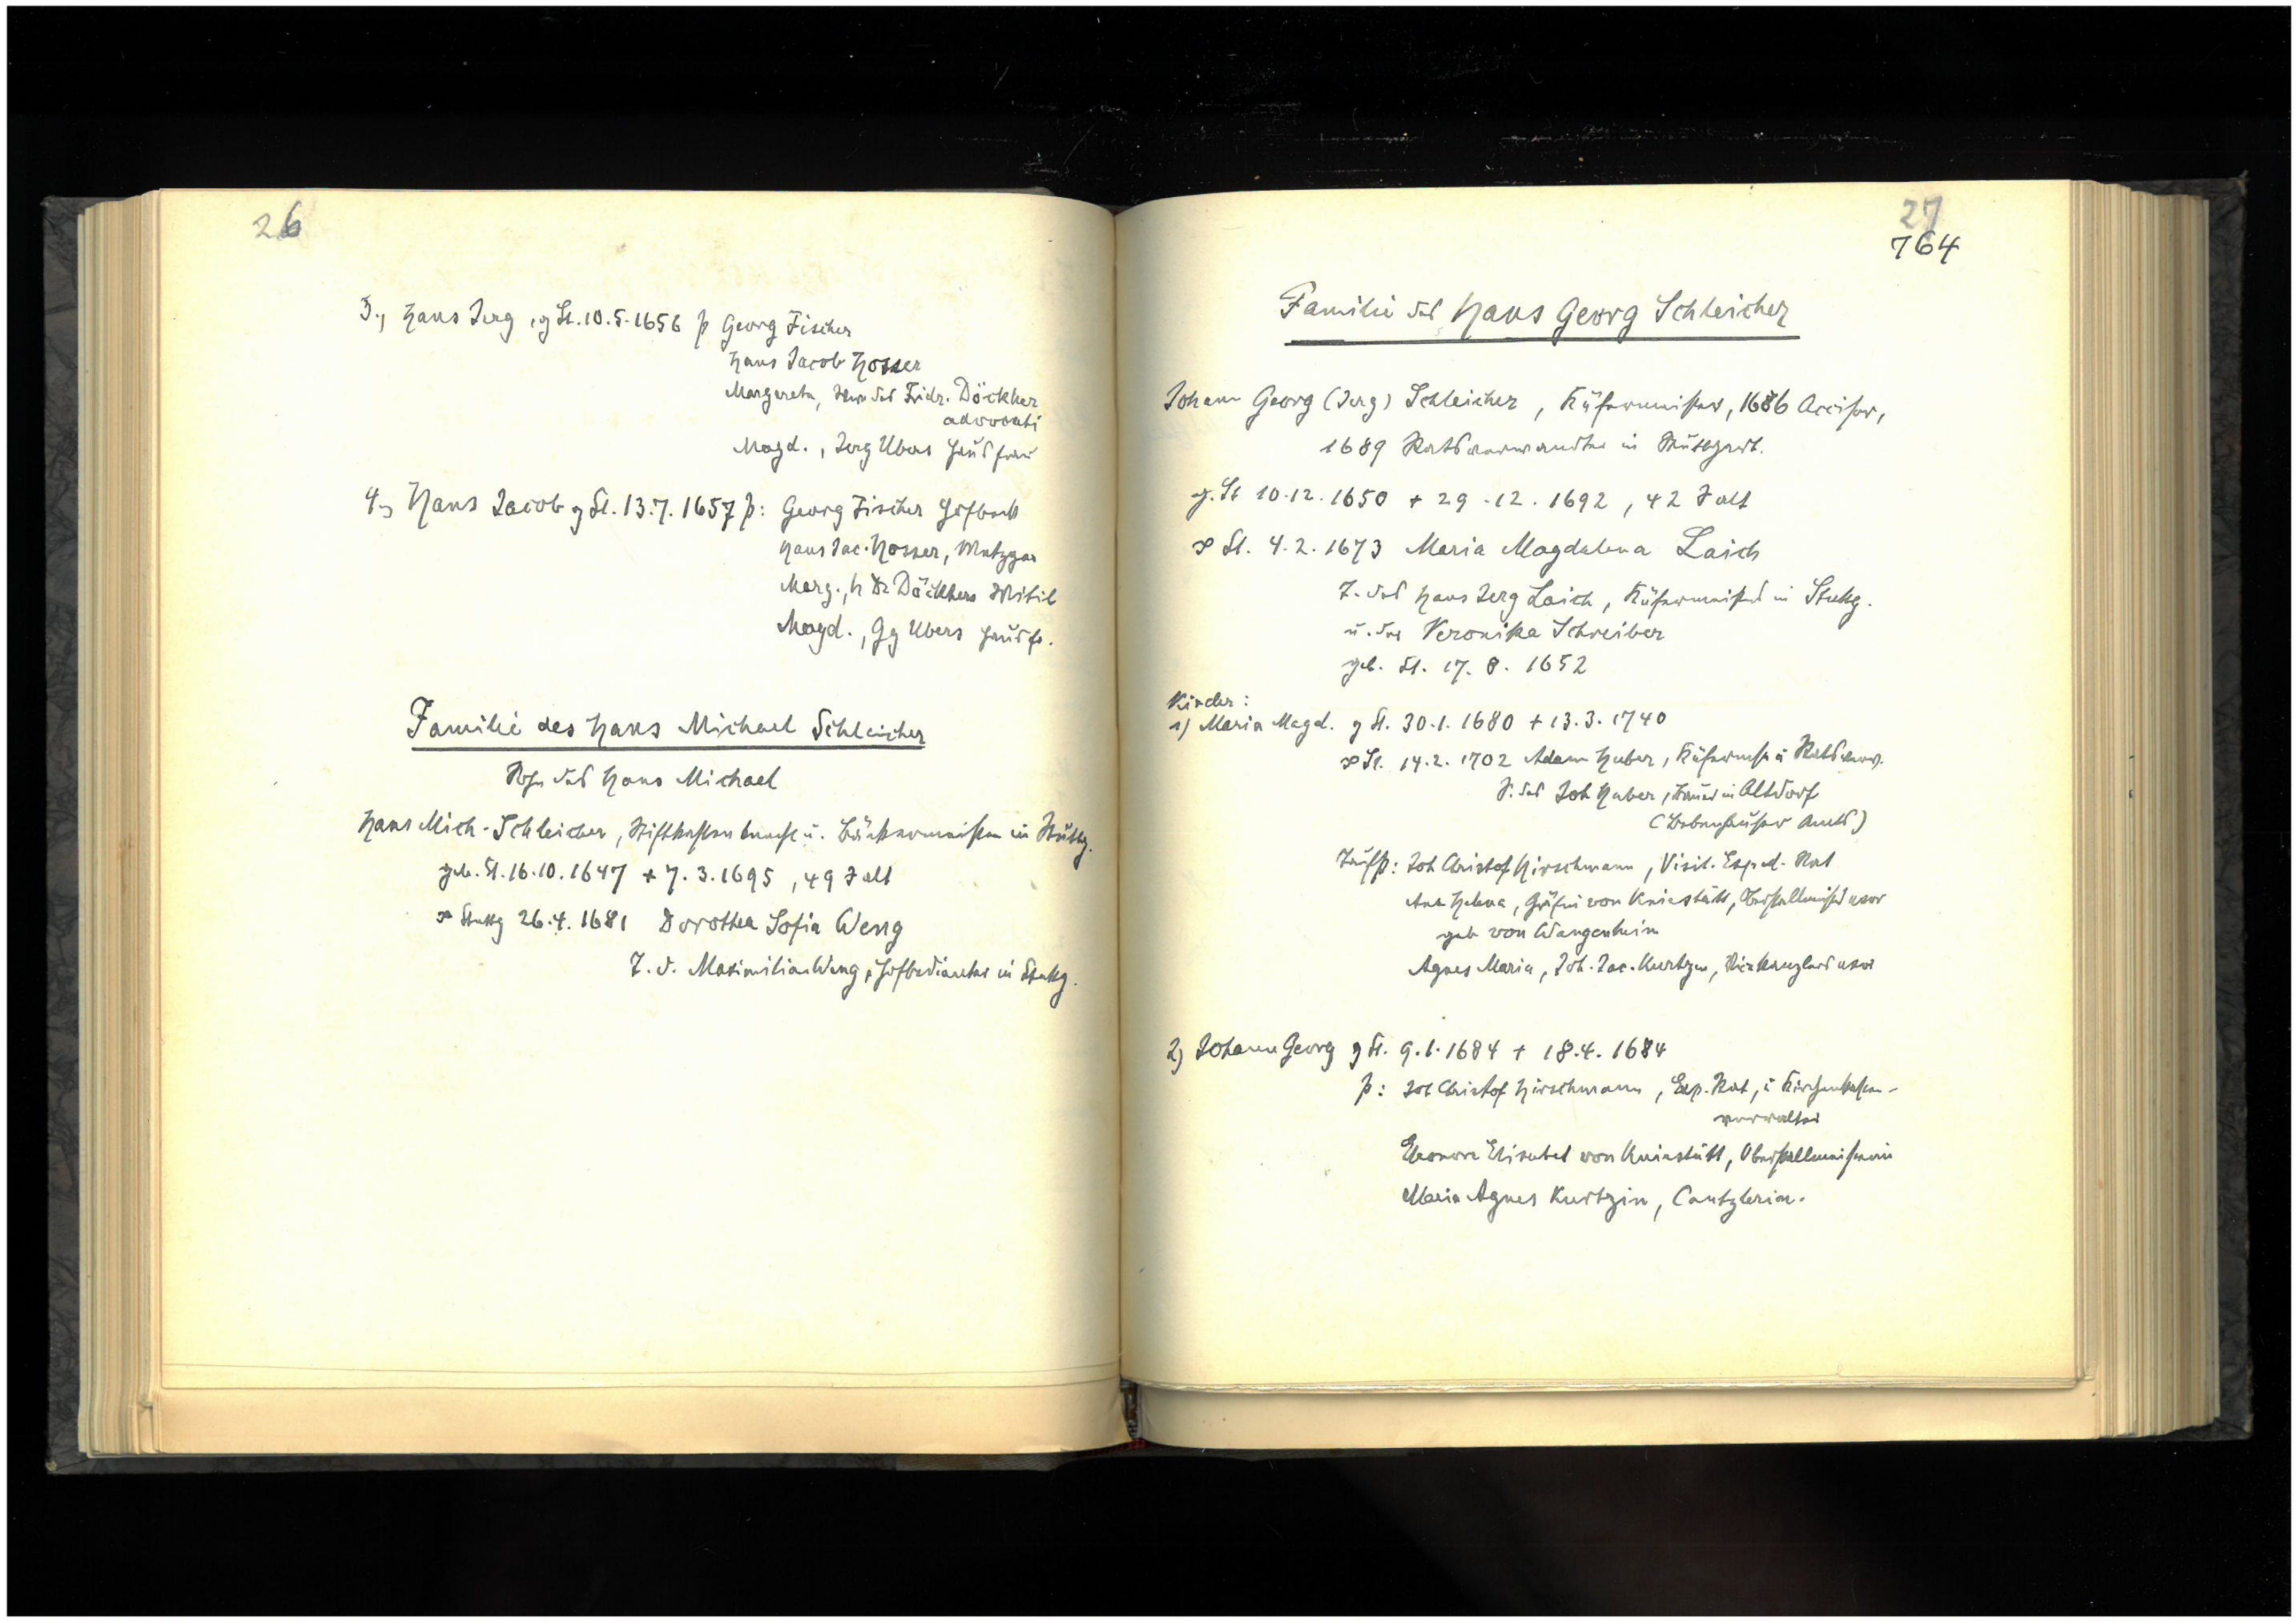 26
3., Hans Jerg, g St. 10.5.1656 p Georg Fischer
Hans Jacob Hosser
Margareta, des Fridr. Döckher
advocati
Magd., Jerg Ubers Hausfrau
4., Hans Jacob g St. 13.7.1657 p: Georg Fischer Hofbeck
Hans Jac. Hosser, Metzger
Marg., H Dr Döckhers Witib
Magd., Gg Ubers Hausfr.
Familie des Hans Michael Schleicher
Sohn des Hans Michael
Hans Mich. Schleicher, Stiftkasten u. Bäckermeister in Stuttg.
geb. St. 16.10.1647 + 7.3.1695, 49 J alt
∞ Stuttg 26.4.1681 Dorothea Sofia Weng
T. d. Maximilian Weng, Hofbedienter in Stuttg.
27
764
Familie des Hans Georg Schleicher
Johann Georg (Jerg) Schleicher, Küfermeister, 1686 Acciser,
1689 Ratsverwandter in Stuttgart.
g. St 10.12.1650 + 29.12.1692, 42 J alt
∞ St. 4.2.1673 Maria Magdalena Laich
T. des Hans Jerg Laich, Küfermeisters in Stuttg.
u. der Veronika Schreiber
geb. St. 17.8.1652
Kinder:
1) Maria Magd. g St. 30.1.1680 + 13.3.1740
∞ St. 14.2.1702 Adam Huber, Küfermstr u Ratsverw.
S. des Joh Huber, Bauer in Altdorf
(Bebenhäuser Amts)
Taufp: Joh Christof Hirschmann, Visit. Exped. Rat
Ana Helena, Gräfin von Kniestätt, Oberstallmeisters uxor
geb von Wangenheim
Agnes Maria, Joh. Jac. Kurtzen, Vizekanzlers uxor
2) Johann Georg g St. 9.1.1684 + 18.4.1684
p: Joh Christof Hirschmann, Exp. Rat, u Kirchenkasten-
verwalter
Eleonore Elisabet von Kniestätt, Oberstallmeisterin
Maria Agnes Kurtzin, Cantzlerin.